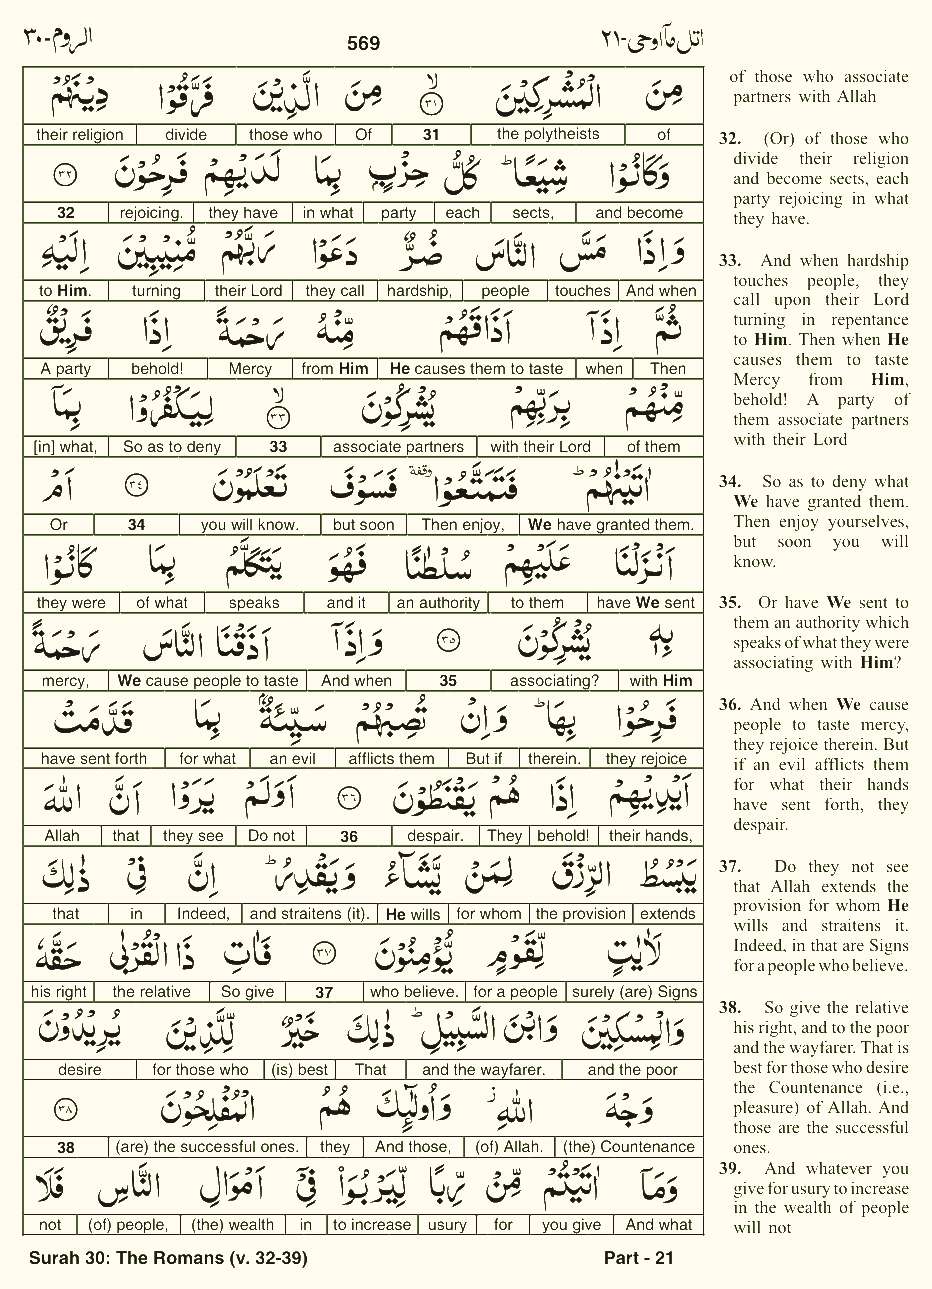 الروم-٣٠
569
اتل مآاوحی-٢١
مِنَ الْمُشْرِكِيْنَ ۙ ٣١ مِنَ الَّذِيْنَ فَرَّقُوْا دِيْنَهُمْ
of | the polytheists | 31 | Of | those who | divide | their religion
وَكَانُوْا شِيَعًا ؕ كُلُّ حِزْبٍۭ بِمَا لَدَيْهِمْ فَرِحُوْنَ ٣٢
and become | sects, | each | party | in what | they have | rejoicing. | 32
وَاِذَا مَسَّ النَّاسَ ضُرٌّ دَعَوْا رَبَّهُمْ مُّنِيْبِيْنَ اِلَيْهِ
And when | touches | people | hardship, | they call | their Lord | turning | to Him.
ثُمَّ اِذَآ اَذَاقَهُمْ مِّنْهُ رَحْمَةً اِذَا فَرِيْقٌ
Then | when | He causes them to taste | from Him | Mercy | behold! | A party
مِّنْهُمْ بِرَبِّهِمْ يُشْرِكُوْنَ ۙ ٣٣ لِيَكْفُرُوْا بِمَآ
of them | with their Lord | associate partners | 33 | So as to deny | [in] what,
اٰتَيْنٰهُمْ ؕ فَتَمَتَّعُوْا وقفة فَسَوْفَ تَعْلَمُوْنَ ٣٤ اَمْ
We have granted them. | Then enjoy, | but soon | you will know. | 34 | Or
اَنْزَلْنَا عَلَيْهِمْ سُلْطٰنًا فَهُوَ يَتَكَلَّمُ بِمَا كَانُوْا
have We sent | to them | an authority | and it | speaks | of what | they were
بِهٖ يُشْرِكُوْنَ ٣٥ وَاِذَآ اَذَقْنَا النَّاسَ رَحْمَةً
with Him | associating? | 35 | And when | We cause people to taste | mercy,
فَرِحُوْا بِهَا ؕ وَاِنْ تُصِبْهُمْ سَيِّئَةٌۢ بِمَا قَدَّمَتْ
they rejoice | therein. | But if | afflicts them | an evil | for what | have sent forth
اَيْدِيْهِمْ اِذَا هُمْ يَقْنَطُوْنَ ٣٦ اَوَلَمْ يَرَوْا اَنَّ اللّٰهَ
their hands, | behold! | They | despair. | 36 | Do not | they see | that | Allah
يَبْسُطُ الرِّزْقَ لِمَنْ يَّشَآءُ وَيَقْدِرُ ؕ اِنَّ فِيْ ذٰلِكَ
extends | the provision | for whom | He wills | and straitens (it). | Indeed, | in | that
لَاٰيٰتٍ لِّقَوْمٍ يُّؤْمِنُوْنَ ٣٧ فَاٰتِ ذَا الْقُرْبٰى حَقَّهٗ
surely (are) Signs | for a people | who believe. | 37 | So give | the relative | his right
وَالْمِسْكِيْنَ وَابْنَ السَّبِيْلِ ؕ ذٰلِكَ خَيْرٌ لِّلَّذِيْنَ يُرِيْدُوْنَ
and the poor | and the wayfarer. | That | (is) best | for those who | desire
وَجْهَ اللّٰهِ ۫ وَاُولٰٓئِكَ هُمُ الْمُفْلِحُوْنَ ٣٨
(the) Countenance | (of) Allah. | And those, | they | (are) the successful ones. | 38
وَمَآ اٰتَيْتُمْ مِّنْ رِّبًا لِّيَرْبُوَا۟ فِيْٓ اَمْوَالِ النَّاسِ فَلَا
And what | you give | for | usury | to increase | in | (the) wealth | (of) people, | not
of those who associate
partners with Allah
32. (Or) of those who
divide their religion
and become sects, each
party rejoicing in what
they have.
33. And when hardship
touches people, they
call upon their Lord
turning in repentance
to Him. Then when He
causes them to taste
Mercy from Him,
behold! A party of
them associate partners
with their Lord
34. So as to deny what
We have granted them.
Then enjoy yourselves,
but soon you will
know.
35. Or have We sent to
them an authority which
speaks of what they were
associating with Him?
36. And when We cause
people to taste mercy,
they rejoice therein. But
if an evil afflicts them
for what their hands
have sent forth, they
despair.
37. Do they not see
that Allah extends the
provision for whom He
wills and straitens it.
Indeed, in that are Signs
for a people who believe.
38. So give the relative
his right, and to the poor
and the wayfarer. That is
best for those who desire
the Countenance (i.e.,
pleasure) of Allah. And
those are the successful
ones.
39. And whatever you
give for usury to increase
in the wealth of people
will not
Surah 30: The Romans (v. 32-39)
Part - 21